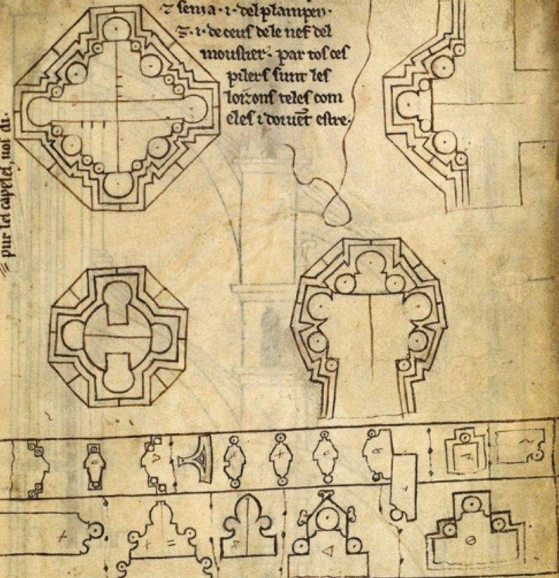 ⁊ semᴀ · ı · del plampen ·
⁊ · ı · de ceus dele nef del
moustier · par tos ces
pilers sunt les
loizons teles com
eles i doivēt estre ·
pur lei capelel, uos di ·